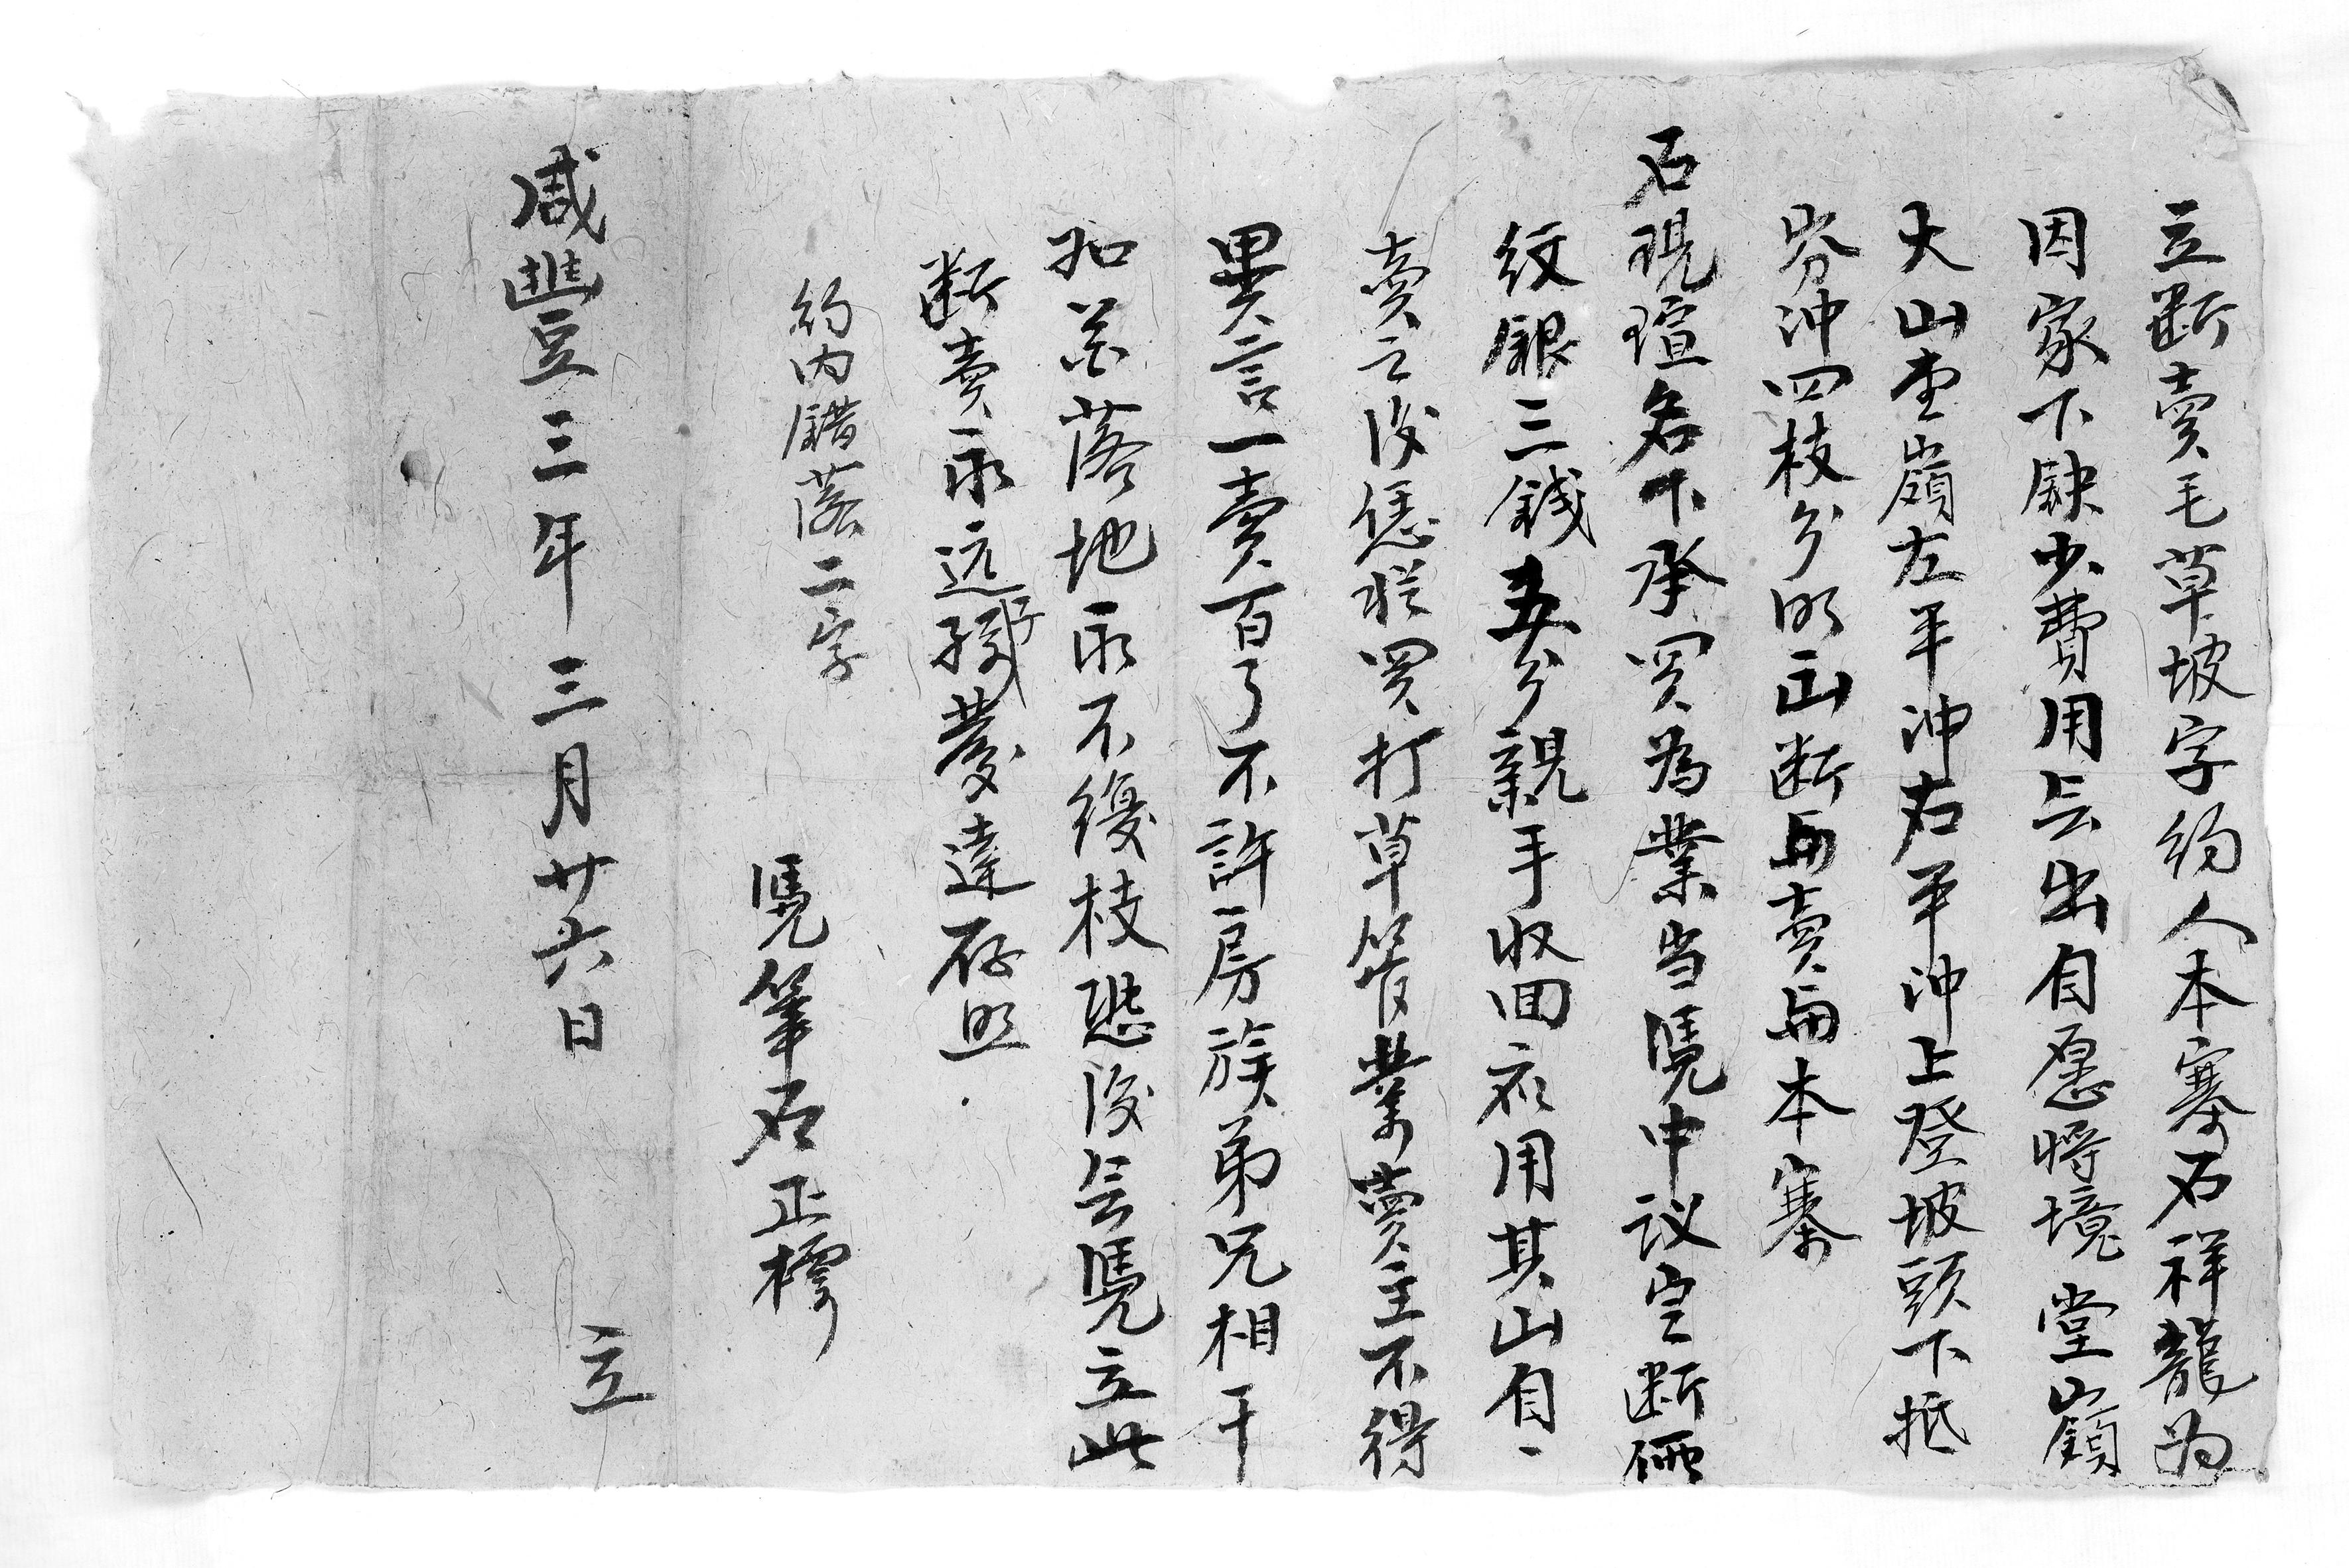 立断賣毛草坡字约人本寨石祥龍为
因家下缺少費用无出自愿将境堂嶺
大山坐嶺左平冲右平冲上登坡頭下抵
岑冲四枝分明正断与賣与本寨
石現瑄名下承買為業当凴中议定断價
紋銀三錢五分親手收回应用其山自一
賣之後恁從買打草管業賣主不得
異言一賣百了不許房族弟兄相干
如若落地永不復枝恐後无凴立此
断賣永遠子孫發達存照
約内錯落二字
凴筆石正樛
咸豐三年三月廿六日 立